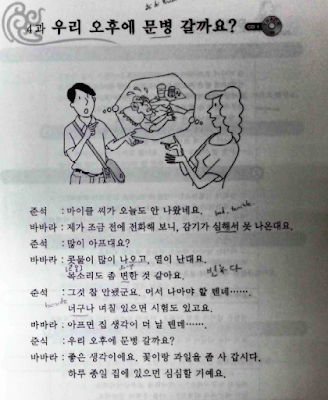 4과 우리 오후에 문병 갈까요?
준석 : 마이클 씨가 오늘도 안 나왔네요.
바바라 : 제가 조금 전에 전화해 보니, 감기가 심해서 못 나온대요.
준석 : 많이 아프대요?
바바라 : 콧물이 많이 나오고, 열이 난대요.
목소리도 좀 변한 것 같아요.
준석 : 그것 참 안됐군요. 어서 나아야 할 텐데……
더구나 며칠 있으면 시험도 있고요.
바바라 : 아프면 집 생각이 더 날 텐데……
준석 : 우리 오후에 문병 갈까요?
바바라 : 좋은 생각이에요. 꽃이랑 과일을 좀 사 갑시다.
하루 종일 집에 있으면 심심할 거예요.